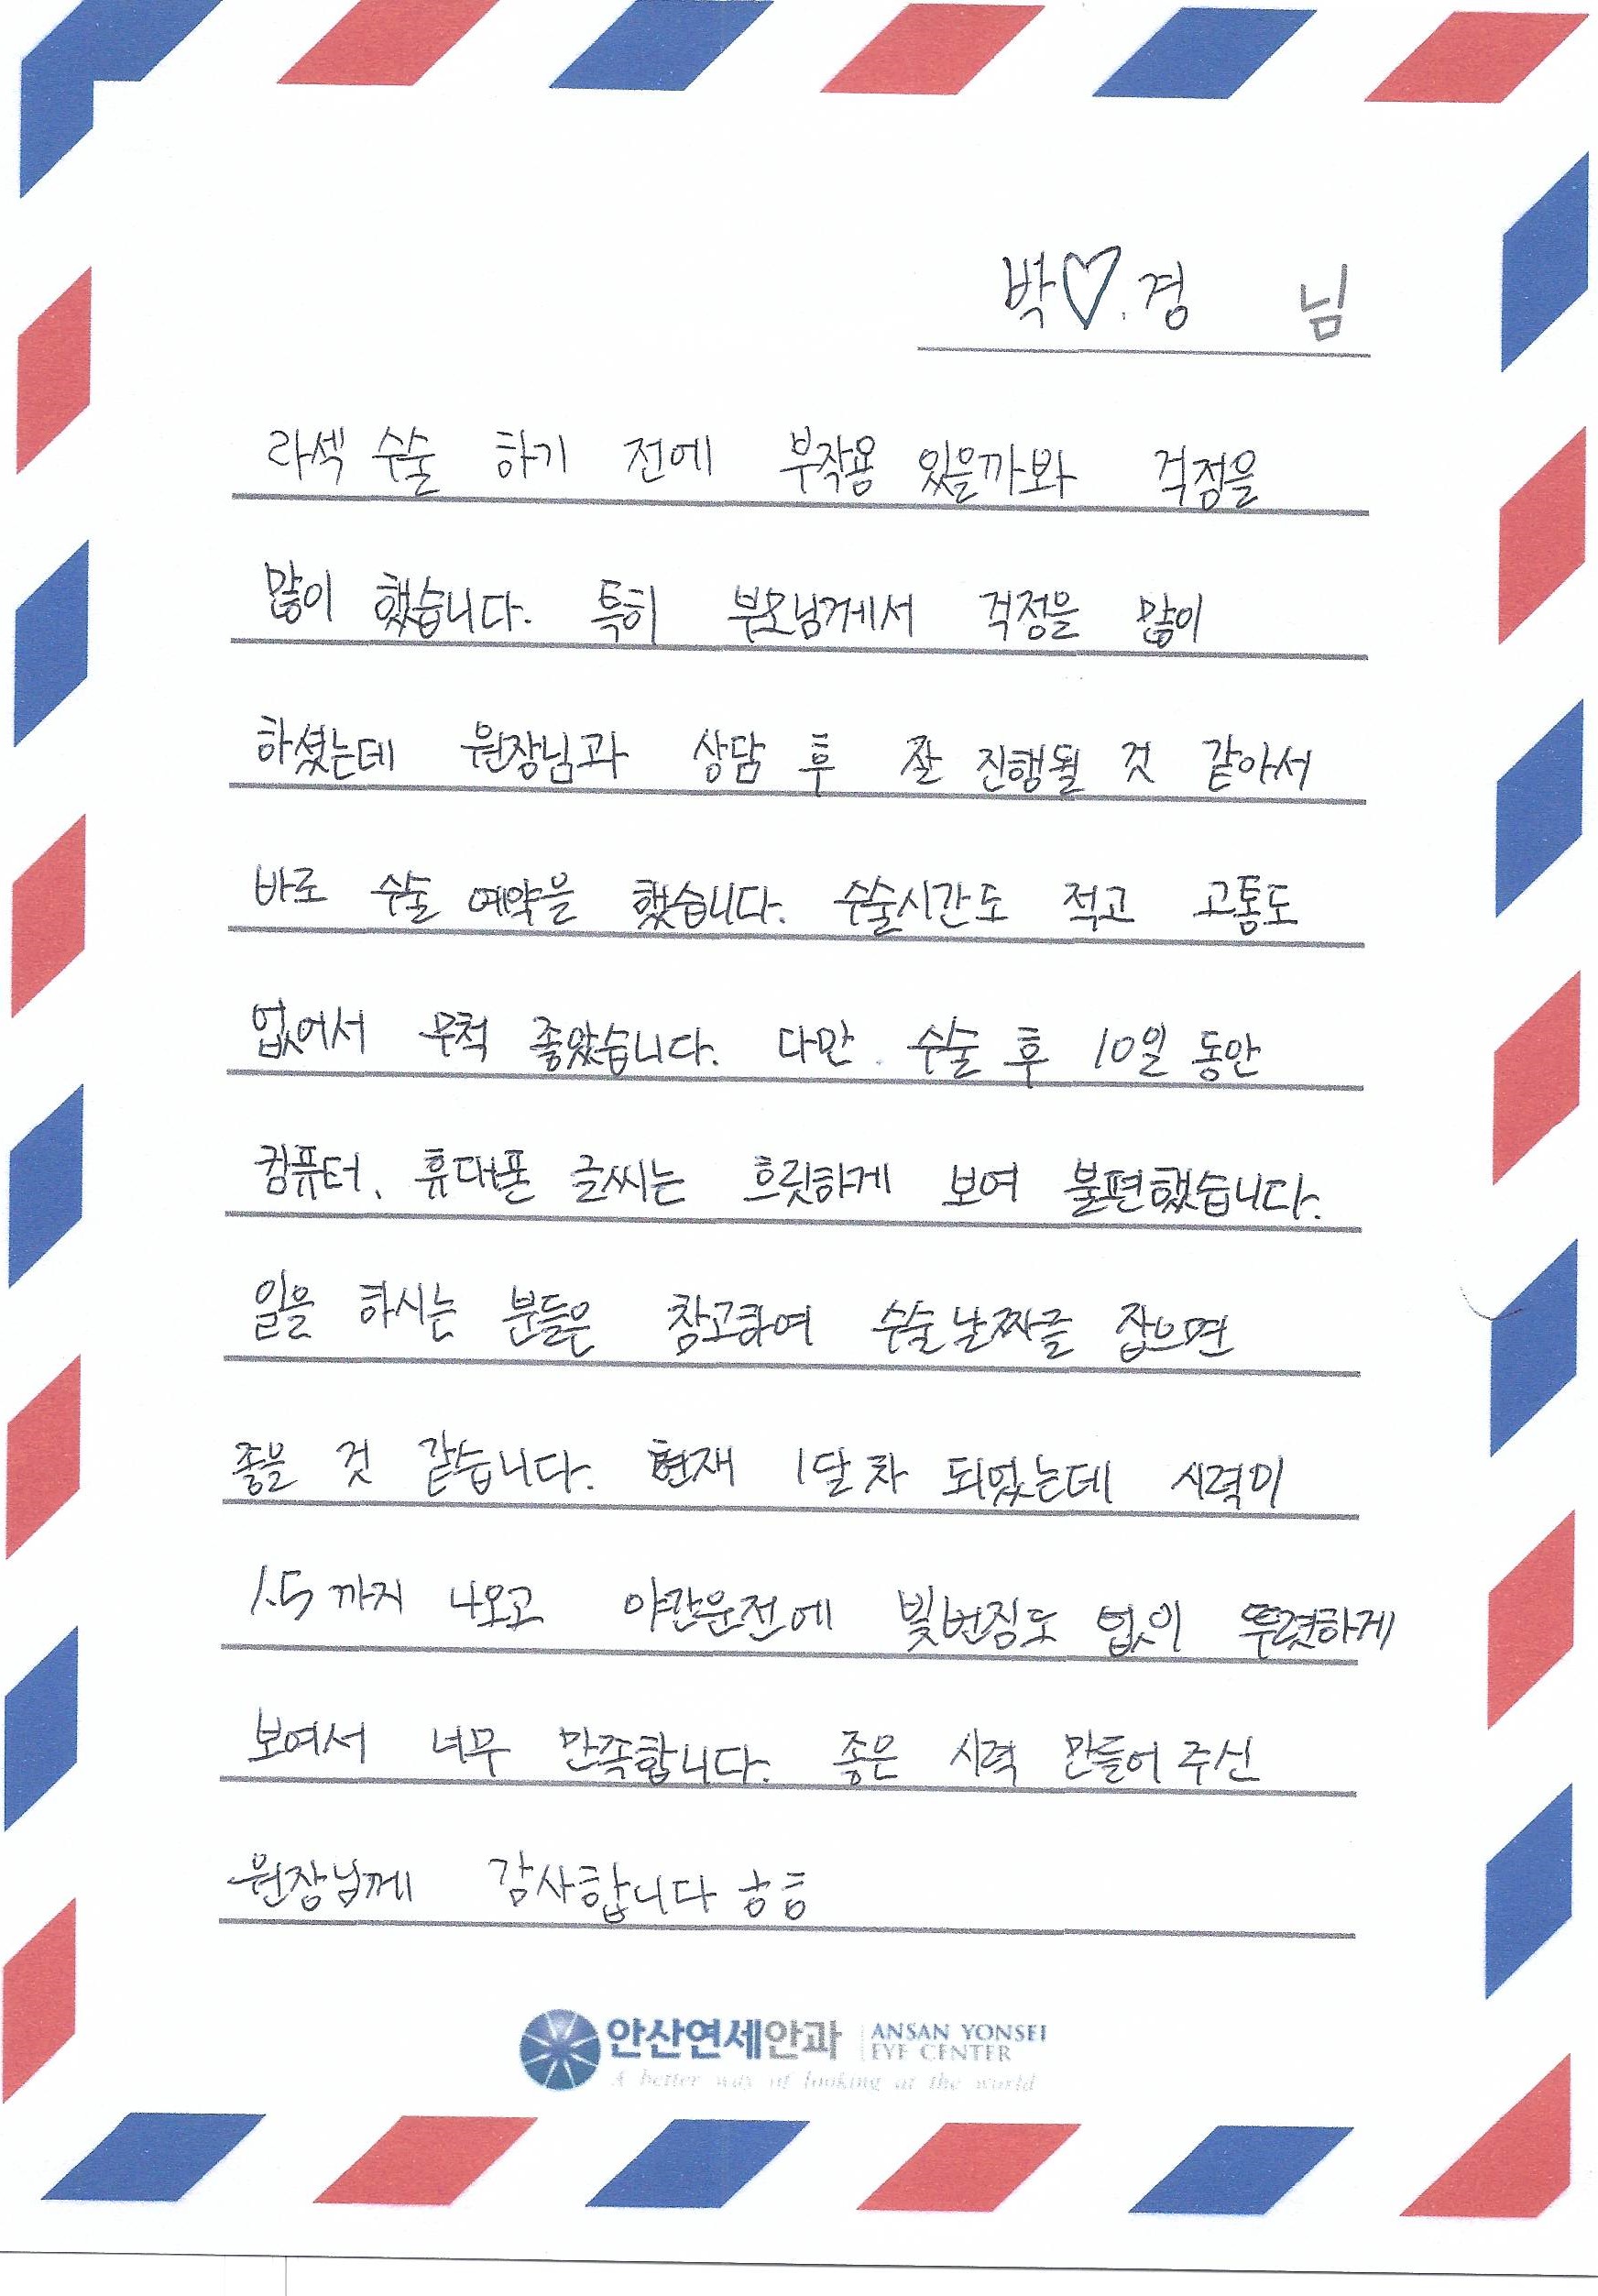 박♡.경 님
라섹 수술 하기 전에 부작용 있을까봐 걱정을
많이 했습니다. 특히 부모님께서 걱정을 많이
하셨는데 원장님과 상담 후 잘 진행될 것 같아서
바로 수술 예약을 했습니다. 수술시간도 적고 고통도
없어서 무척 좋았습니다. 다만. 수술 후 10일 동안
컴퓨터, 휴대폰 글씨는 흐릿하게 보여 불편했습니다.
일을 하시는 분들은 참고하여 수술날짜를 잡으면
좋을 것 같습니다. 현재 1달차 되었는데 시력이
1.5까지 나오고 야간운전에 빛번짐도 없이 뚜렷하게
보여서 너무 만족합니다. 좋은 시력 만들어 주신
원장님께 감사합니다 ㅎㅎ
안산연세안과 ANSAN YONSEI
EYE CENTER
A better way of looking at the world